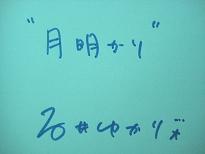 "月明かり"
石井ゆかり